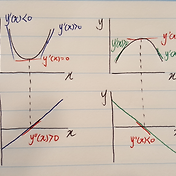 y'(x)<0
y'(x)>0
y'(x)=0
x
y
y'(x)=0
x
y''(x)>0
x
y''(x)<0
x